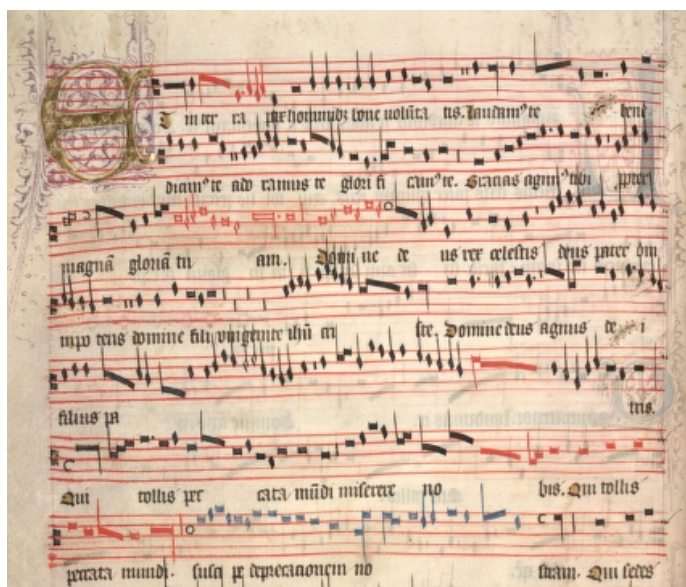 Et in ter ra pax hominibz bone volūta tis. laudamꝰ te bene
dicimꝰ te ado ramus te glori fi camꝰ te. Gracias agimꝰ tibi ppter
magnā gloriā tu am. Domi ne de us rex celestis deus pater om
nipo tens domine fili vnigenite ihū cri ste. Domine deus agnus de i
filius pa tris.
Qui tollis pec cata mūdi miserere no bis. Qui tollis
peccata mundi. susci pe deprecacionem no stram. Qui sedes